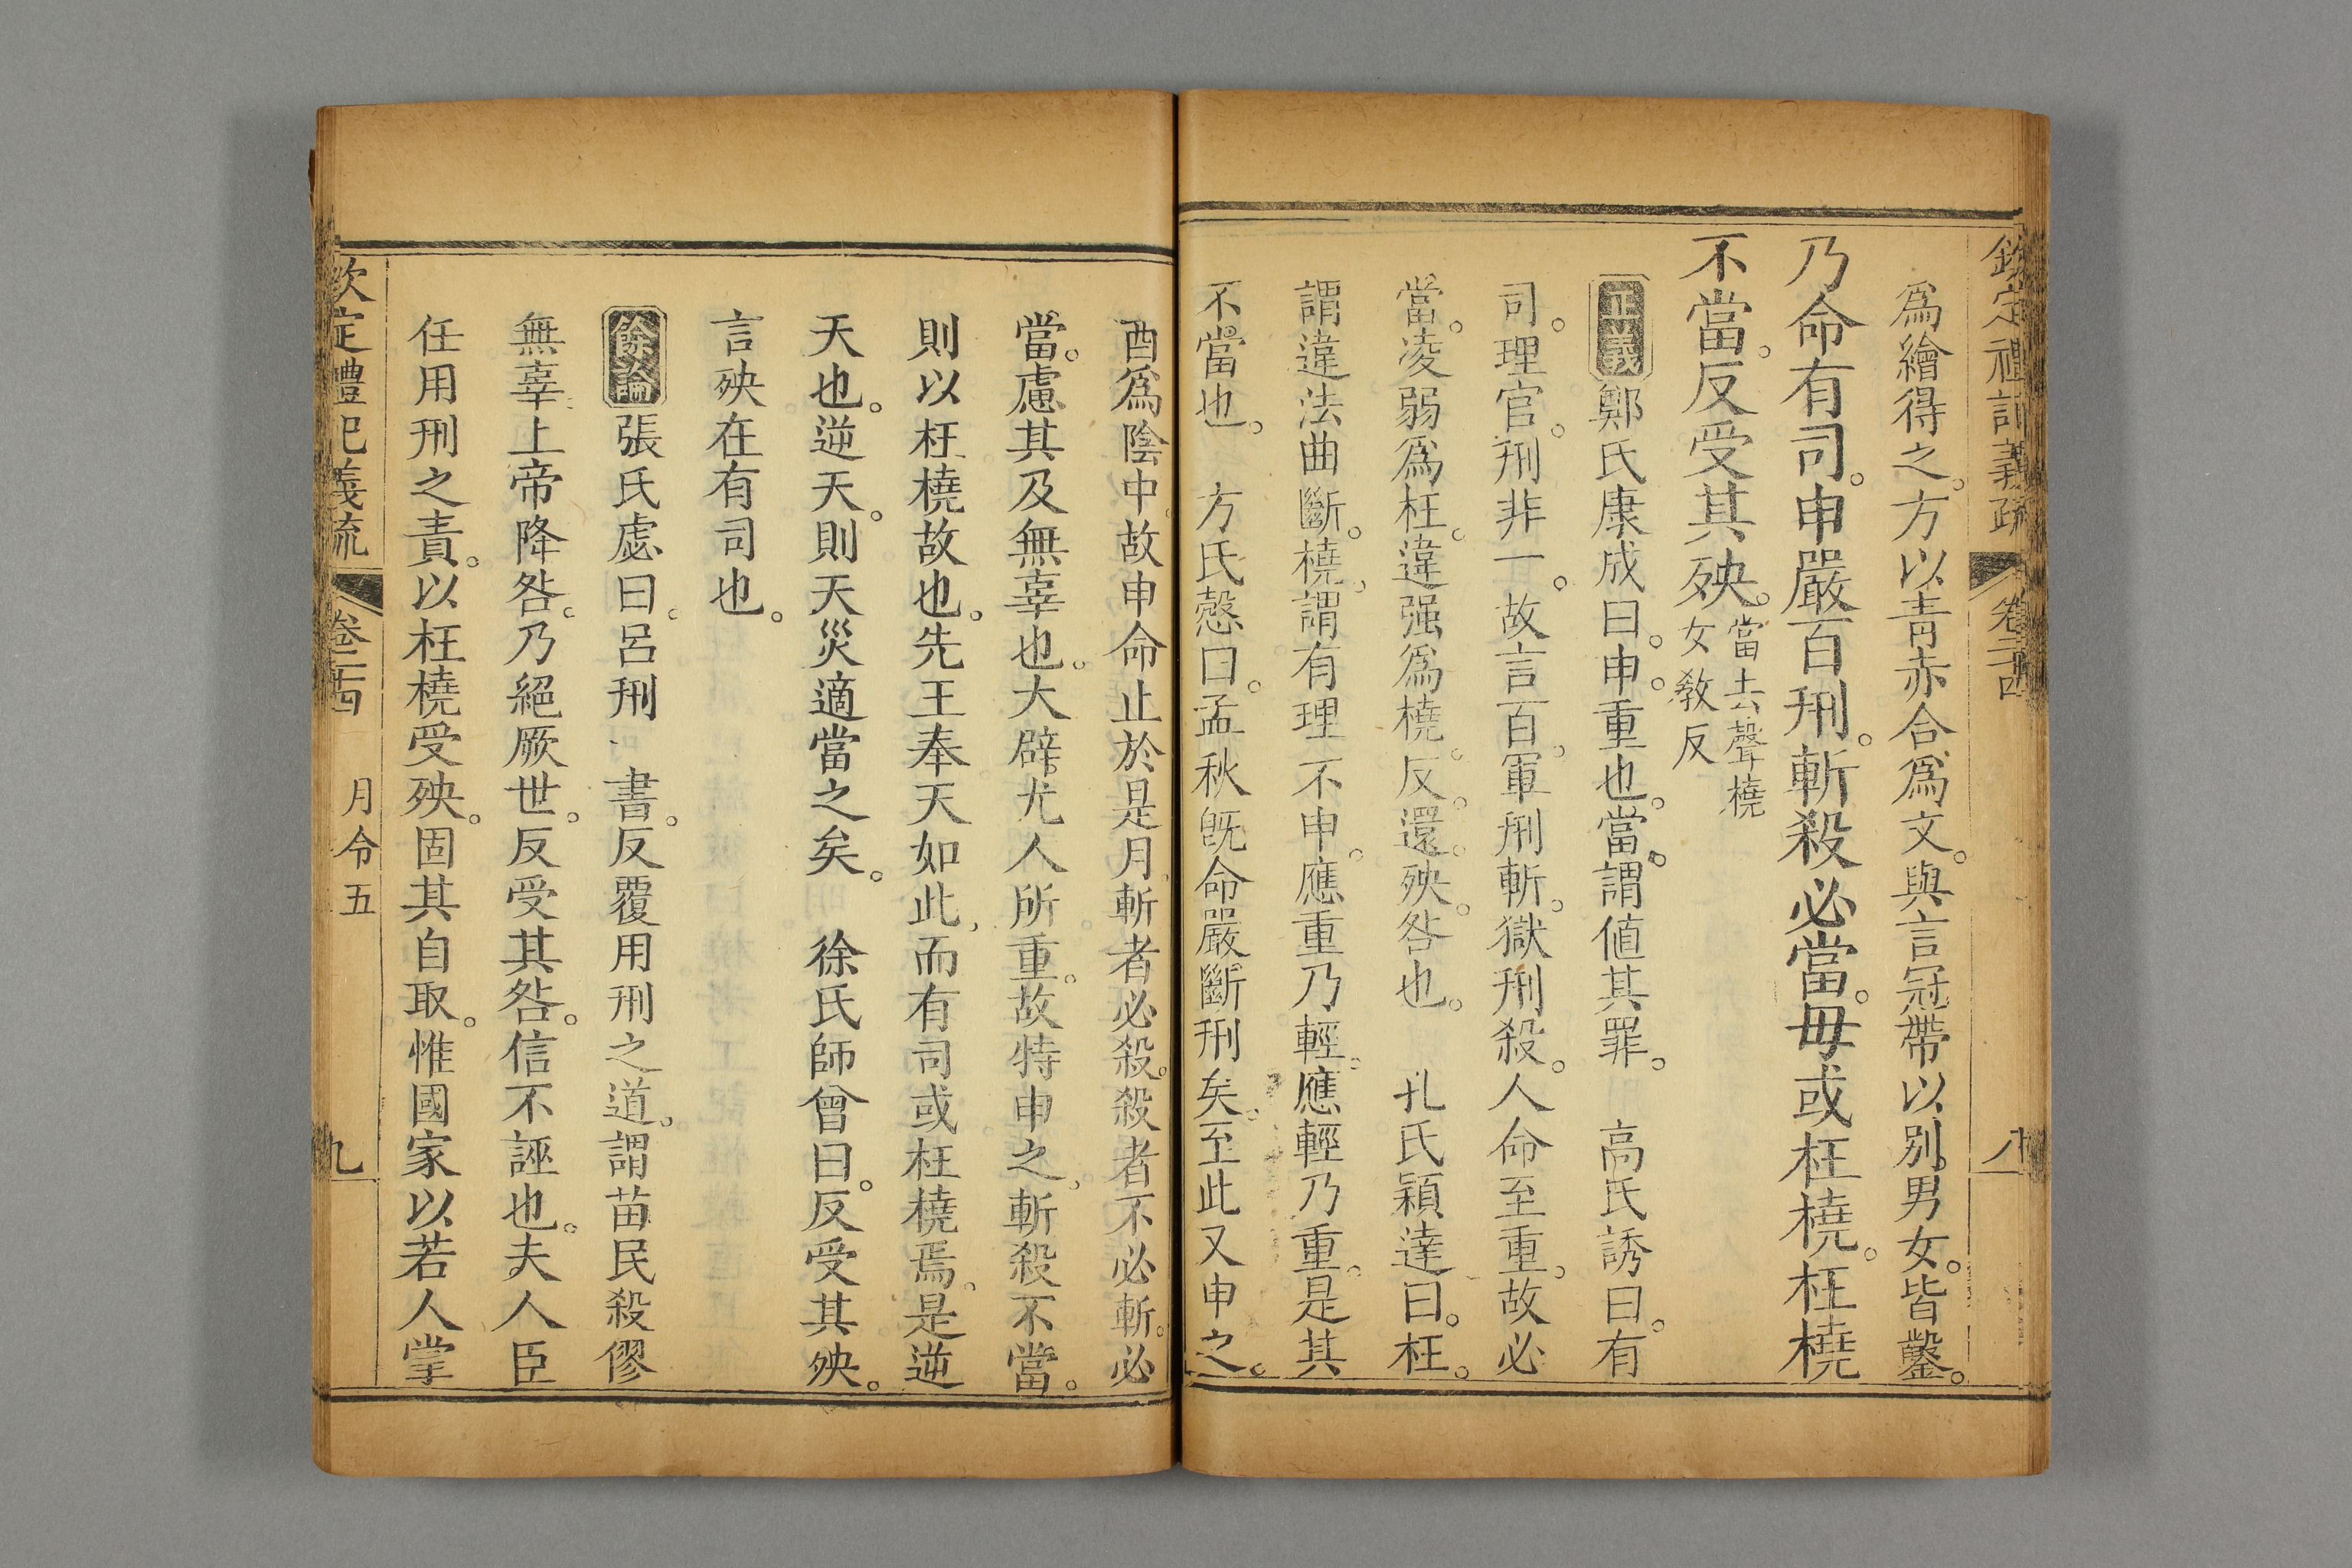 欽定禮記義疏 卷二十四 八
爲繪得之。方以青赤合爲文。與言冠帶以别男女。皆鑿。
乃命有司。申嚴百刑。斬殺必當。毋或枉橈。枉橈
不當。反受其殃。當去聲橈
女教反
正義 鄭氏康成曰。申。重也。當。謂値其罪。 高氏誘曰。有
司。理官。刑非一。故言百。軍刑斬。獄刑殺。人命至重。故必
當。凌弱爲枉。違强爲橈。反。還。殃。咎也。 孔氏穎達曰。枉。
謂違法曲斷。橈。謂有理不申。應重乃輕。應輕乃重。是其
不當也。 方氏慤曰。孟秋旣命嚴斷刑矣。至此又申之。
酉爲陰中。故申命止於是月。斬者必殺。殺者不必斬。必
當。慮其及無辜也。大辟。尤人所重。故特申之。斬殺不當。
則以枉橈故也。先王奉天如此。而有司或枉橈焉。是逆
天也。逆天。則天災適當之矣。 徐氏師曾曰。反受其殃。
言殃在有司也。
餘論 張氏虙曰。呂刑 書。反覆用刑之道。謂苗民殺僇
無辜。上帝降咎。乃絕厥世。反受其咎。信不誣也。夫人臣
任用刑之責。以枉橈受殃。固其自取。惟國家以若人掌
欽定禮記義疏 卷二十四 月令五 九